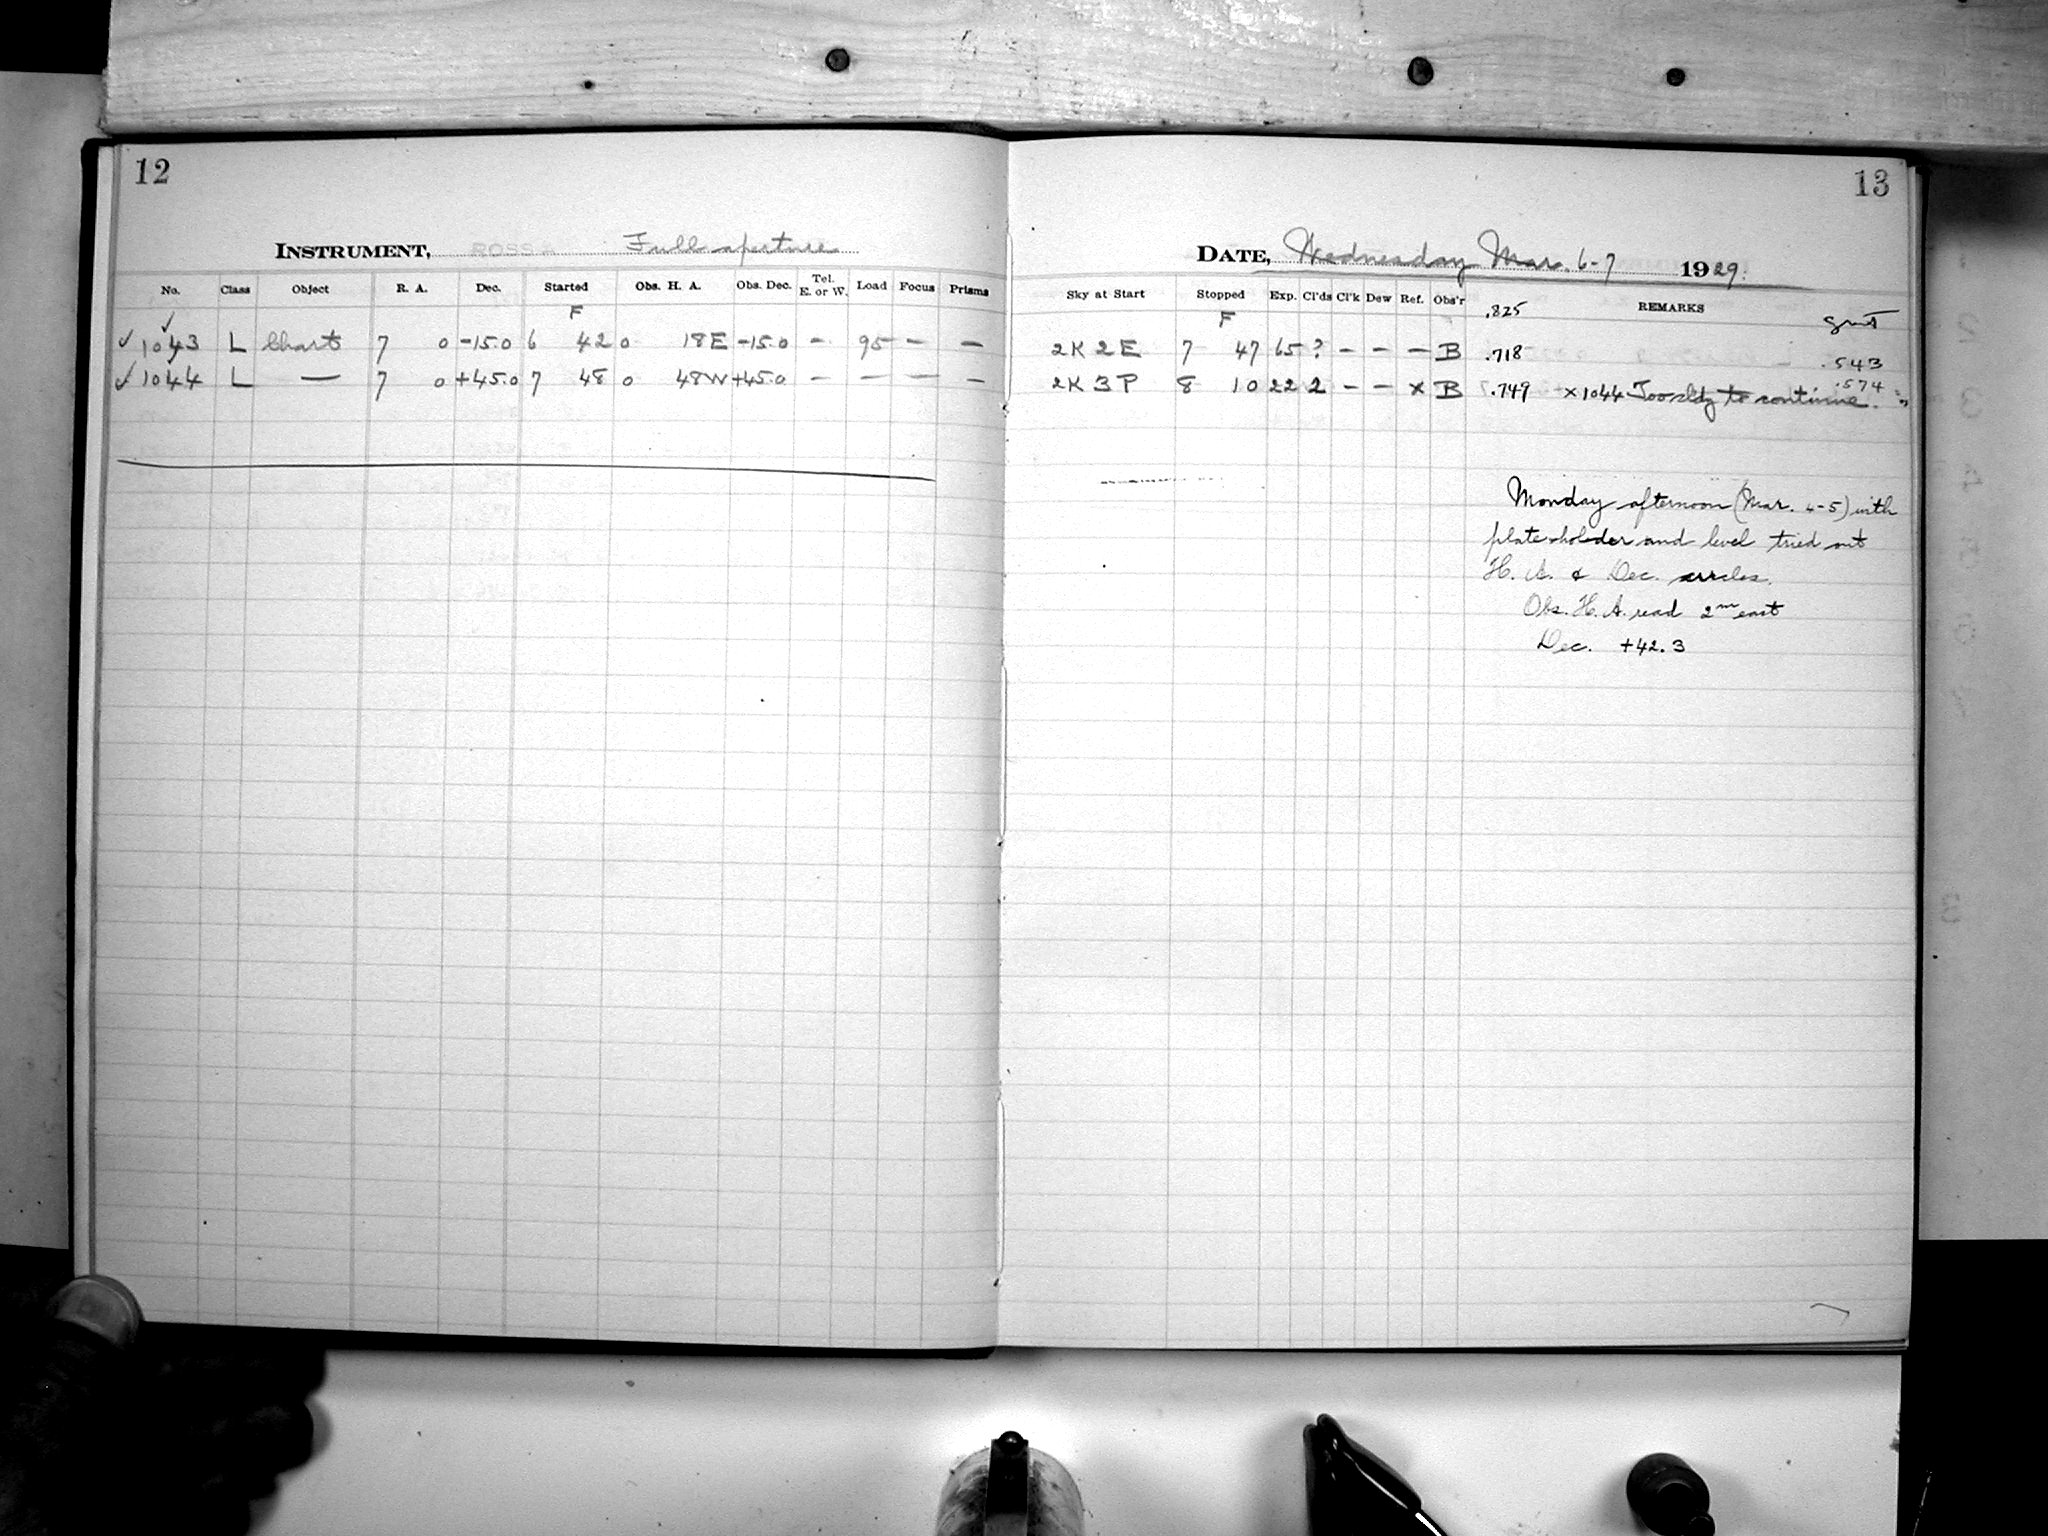 12
INSTRUMENT, ROSS A Full aperture
No. Class Object R. A. Dec. Started Obs. H. A. Obs. Dec. Tel. E. or W. Load Focus Prisms
F
✓ 1043 L Chart 7 0 -15.0 6 42 0 18E -15.0 - 95 - -
✓ 1044 L — 7 0 +45.0 7 48 0 48W +45.0 - - - -
13
DATE, Wednesday Mar. 6-7 1929.
Sky at Start Stopped Exp. Cl'ds Cl'k Dew Ref. Obs'r .825 REMARKS
F
2K2E 7 47 65 ? - - - B .718 .543
2K3P 8 10 22 2 - - x B .749 x1044 Too cldy to continue. .574
Monday afternoon (Mar. 4-5) with
plateholder and level tried out
H. A. & Dec. circles.
Obs. H. A. read 2m east
Dec. +42.3